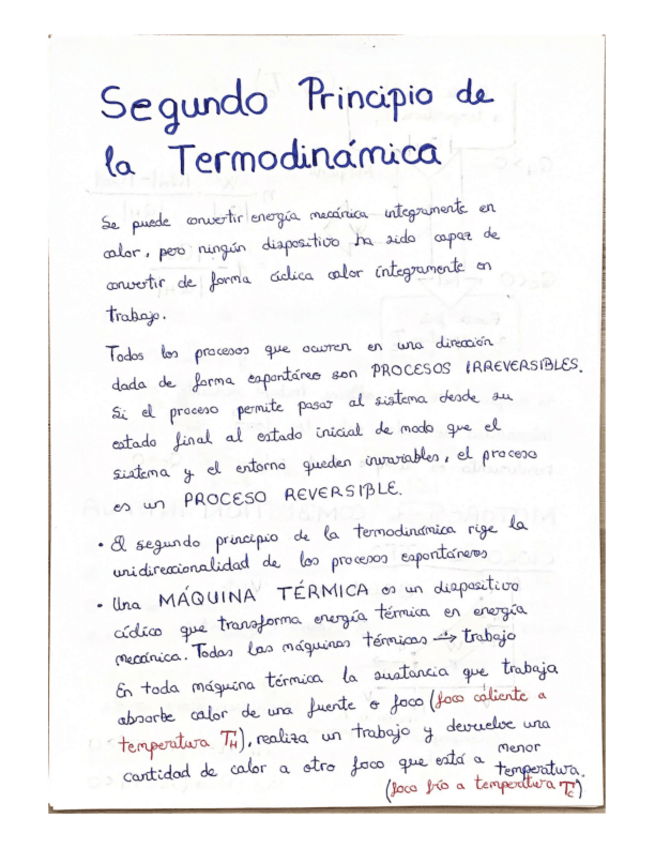 Segundo Principio de
la Termodinámica
Se puede convertir energía mecánica integramente en
calor, pero ningún dispositivo ha sido capaz de
convertir de forma cíclica calor íntegramente en
trabajo.
Todos los procesos que ocurren en una dirección
dada de forma espontáneo son PROCESOS IRREVERSIBLES.
Si el proceso permite pasar al sistema desde su
estado final al estado inicial de modo que el
sistema y el entorno queden invariables, el proceso
es un PROCESO REVERSIBLE.
• El segundo principio de la termodinámica rige la
unidireccionalidad de los procesos espontáneos
• Una MÁQUINA TÉRMICA es un dispositivo
cíclico que transforma energía térmica en energía
mecánica. Todas las máquinas térmicas → trabajo
En toda máquina térmica la sustancia que trabaja
absorbe calor de una fuente o foco (foco caliente a
temperatura T_H), realiza un trabajo y devuelve una
cantidad de calor a otro foco que está a menor
temperatura.
(foco frío a temperatura T_C)